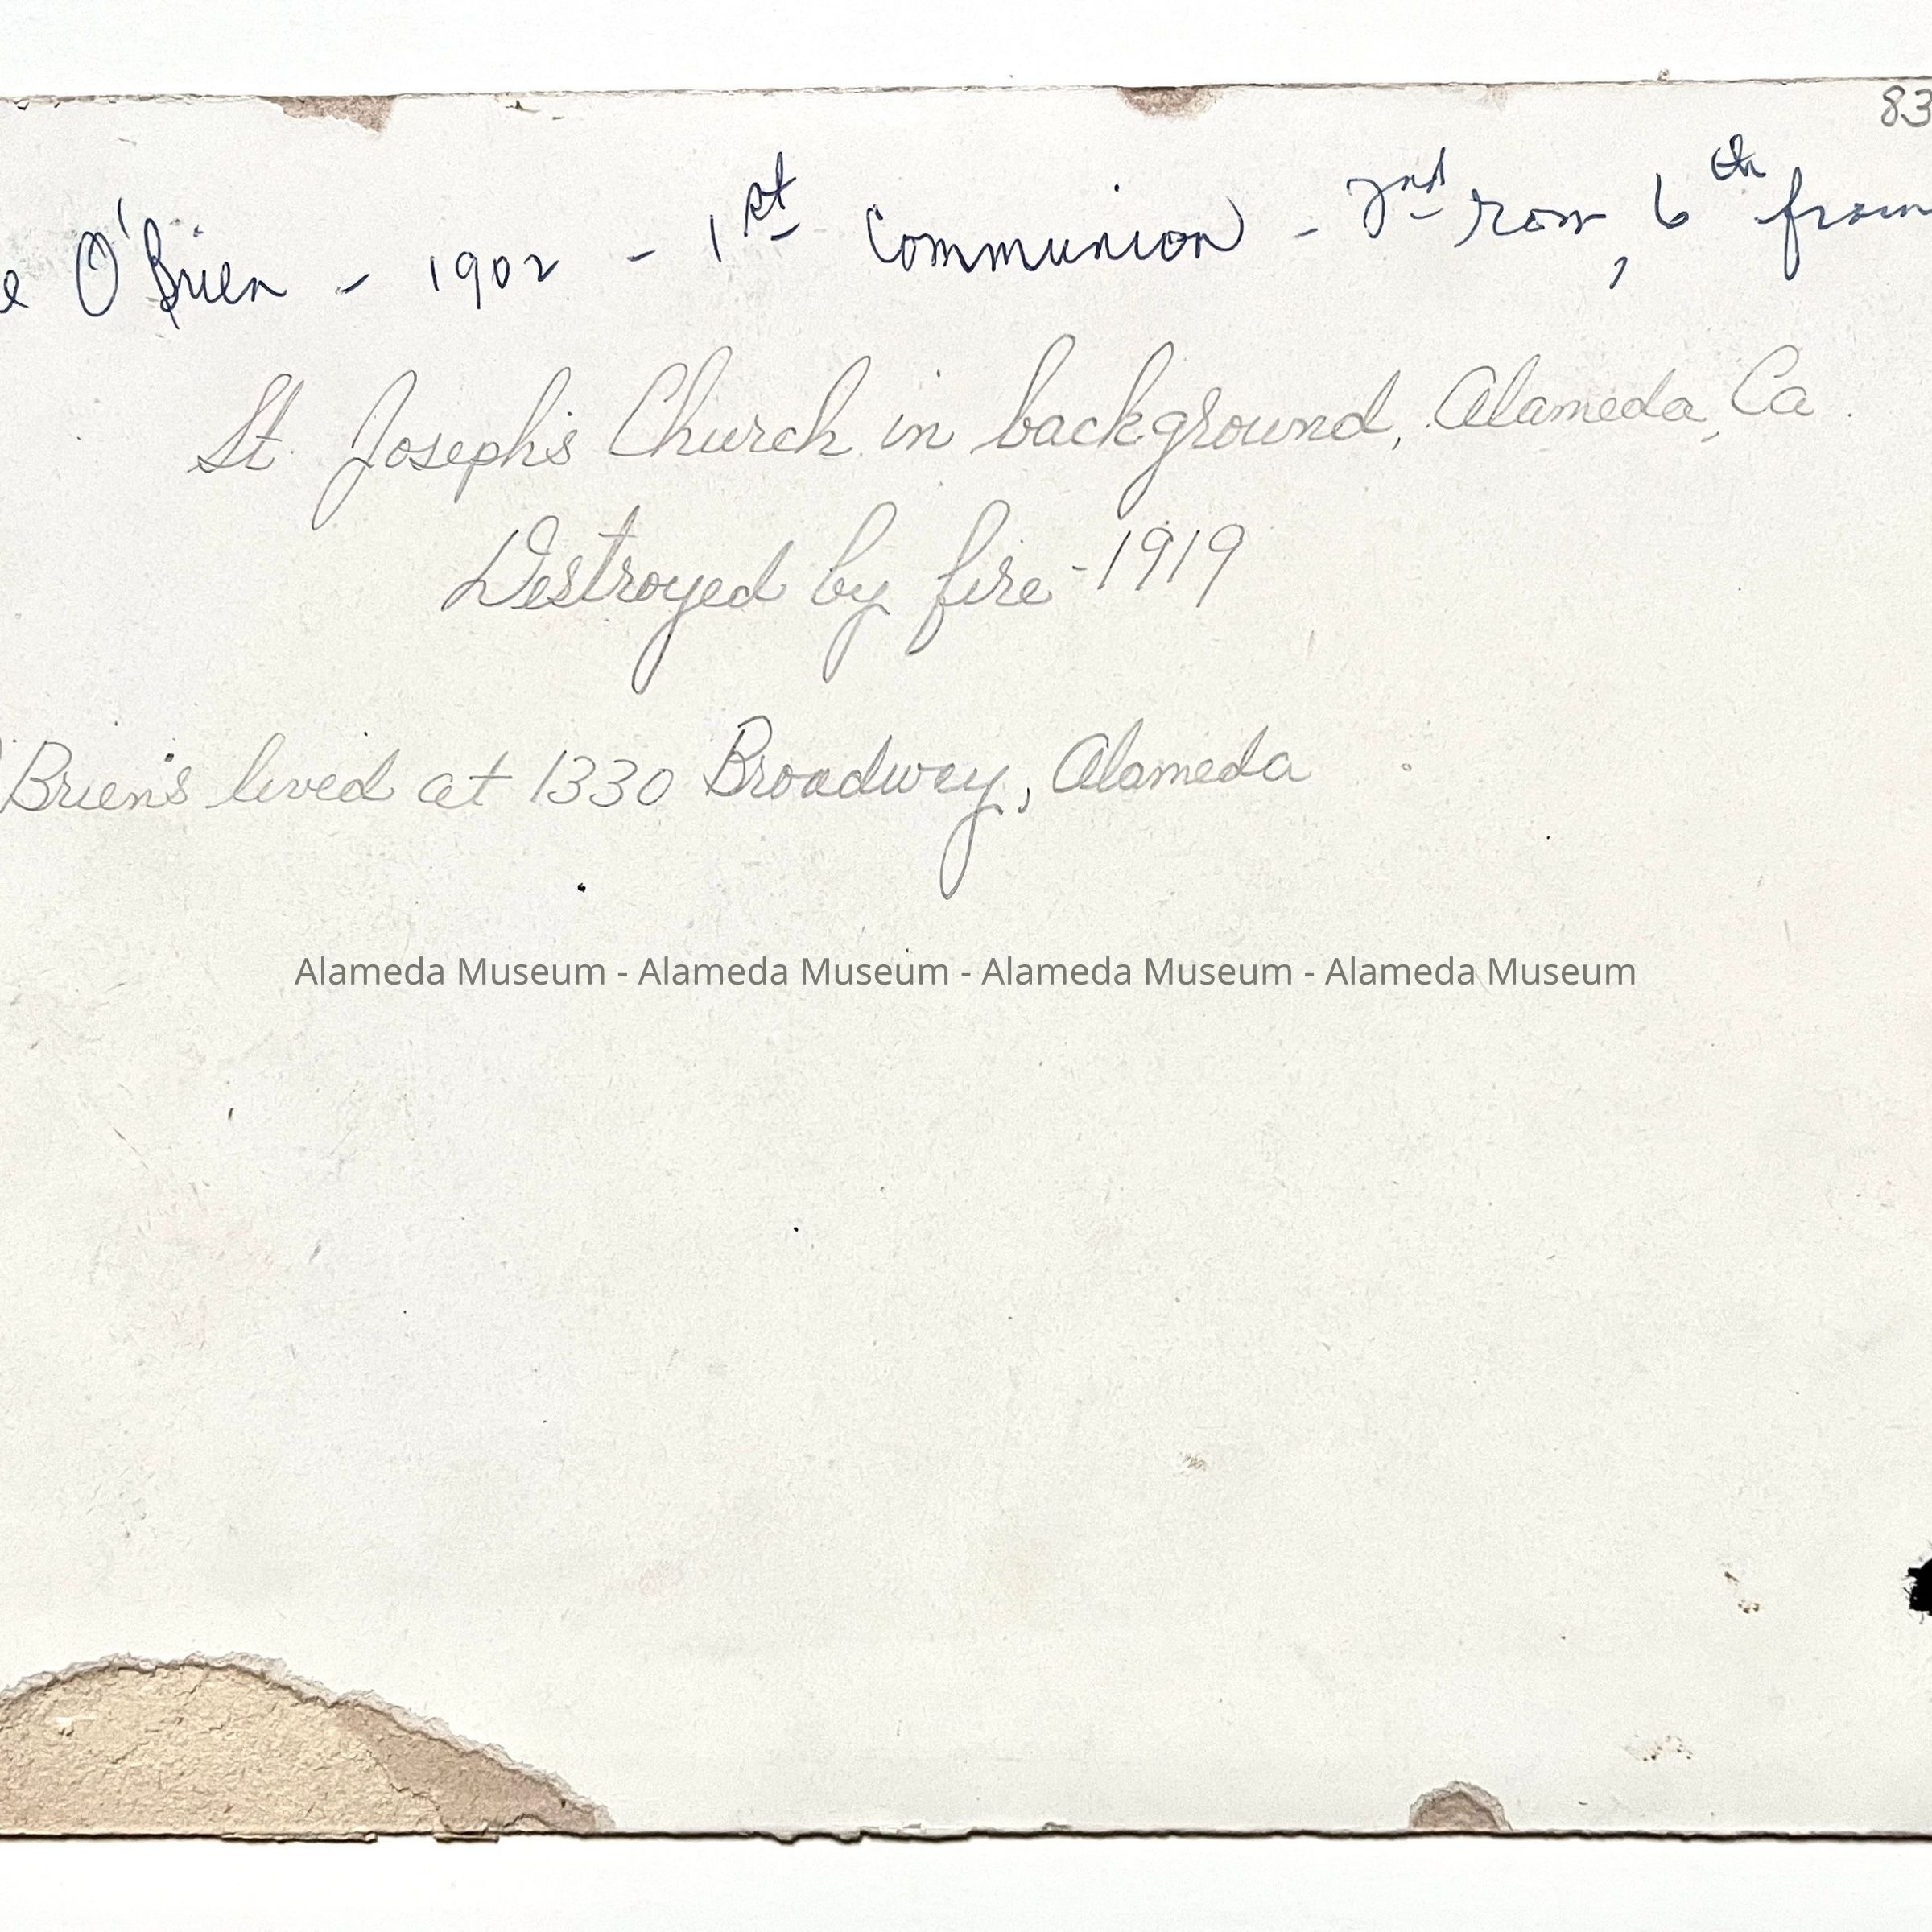 83
e O'Brien - 1902 - 1st Communion - 2nd row, 6th from
St. Joseph's Church in background, Alameda, Ca.
Destroyed by fire - 1919
O'Briens lived at 1330 Broadway, Alameda
Alameda Museum - Alameda Museum - Alameda Museum - Alameda Museum